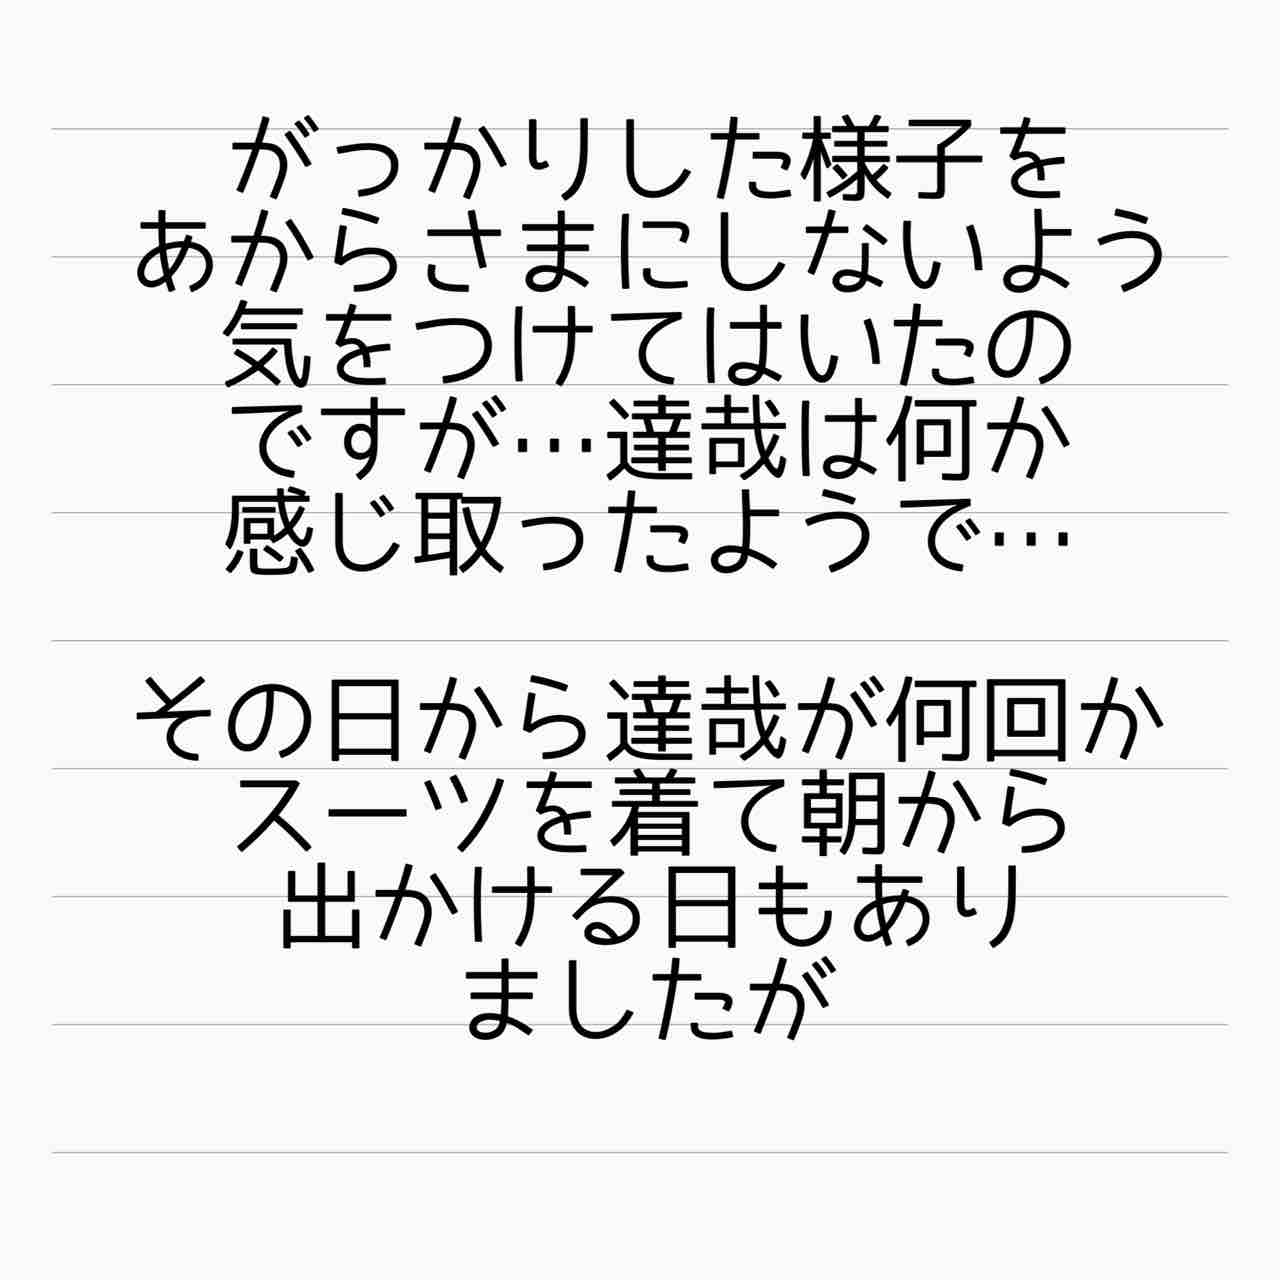 がっかりした様子を
あからさまにしないよう
気をつけてはいたの
ですが…達哉は何か
感じ取ったようで…
その日から達哉が何回か
スーツを着て朝から
出かける日もあり
ましたが